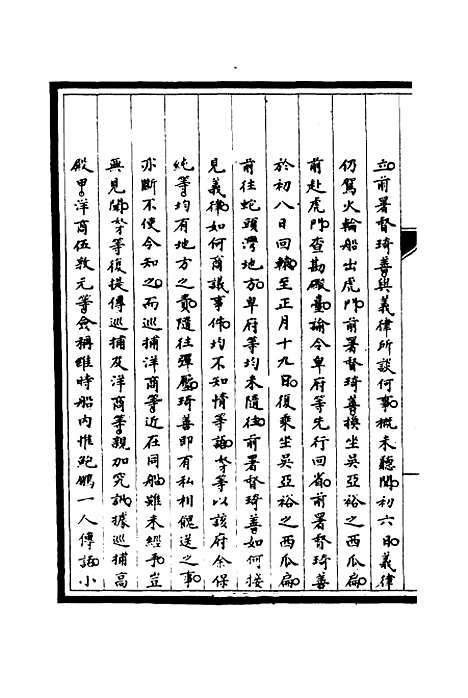 立前署督琦善與義律所談何事概未聽聞初六日義律
仍駕火輪船出虎門前署督琦善換坐吳亞裕之西瓜扁
前赴虎門查勘礮臺諭令卑府等先行回省前署督琦善
於初八日回輪至正月十九日復乘坐吳亞裕之西瓜扁
前往蛇頭灣地方卑府等均未隨往前署督琦善如何接
見義律如何商議事件均不知情等語奴才等以該府余保
純等均有地方之責隨往彈壓琦善即有私相餽送之事
亦斷不使令知之而巡捕洋商等近在同船雖未經手豈
無見聞奴才等復提傳巡捕及洋商等親加究詰據巡捕高
殿甲洋商伍敦元等僉稱維時船內惟鮑鵬一人傳話小